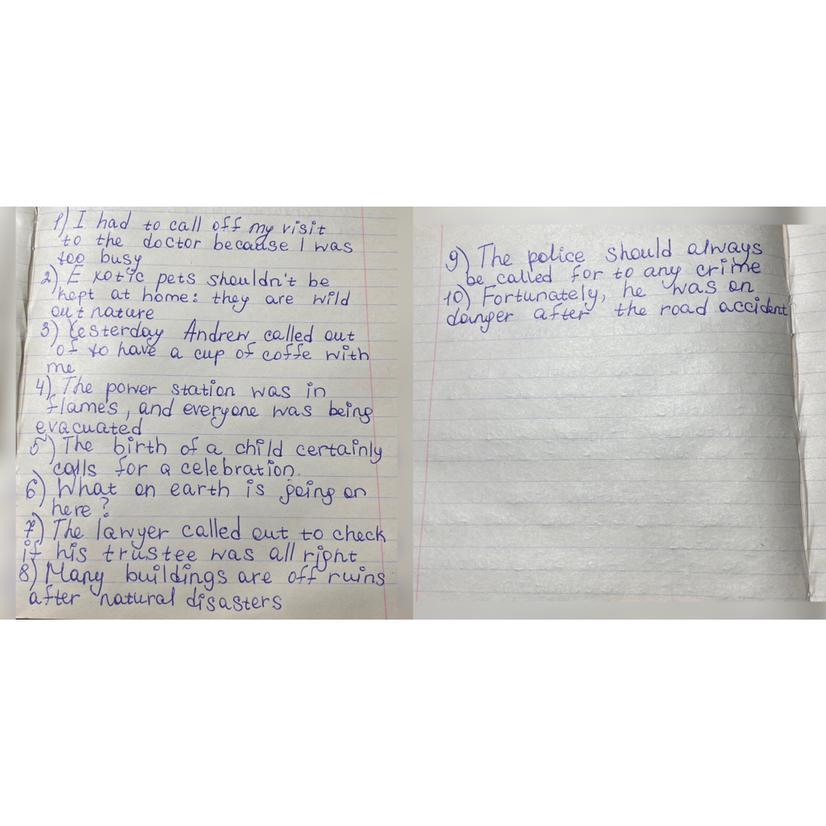 1) I had to call off my visit
to the doctor because I was
too busy
2) Exotic pets shouldn't be
kept at home: they are wild
out nature
3) Yesterday Andrew called out
of to have a cup of coffe with
me
4) The power station was in
flames, and everyone was being
evacuated
5) The birth of a child certainly
calls for a celebration.
6) What on earth is going on
here?
7) The lawyer called out to check
if his trustee was all right
8) Many buildings are off ruins
after natural disasters
9) The police should always
be called for to any crime
10) Fortunately, he was on
danger after the road accident